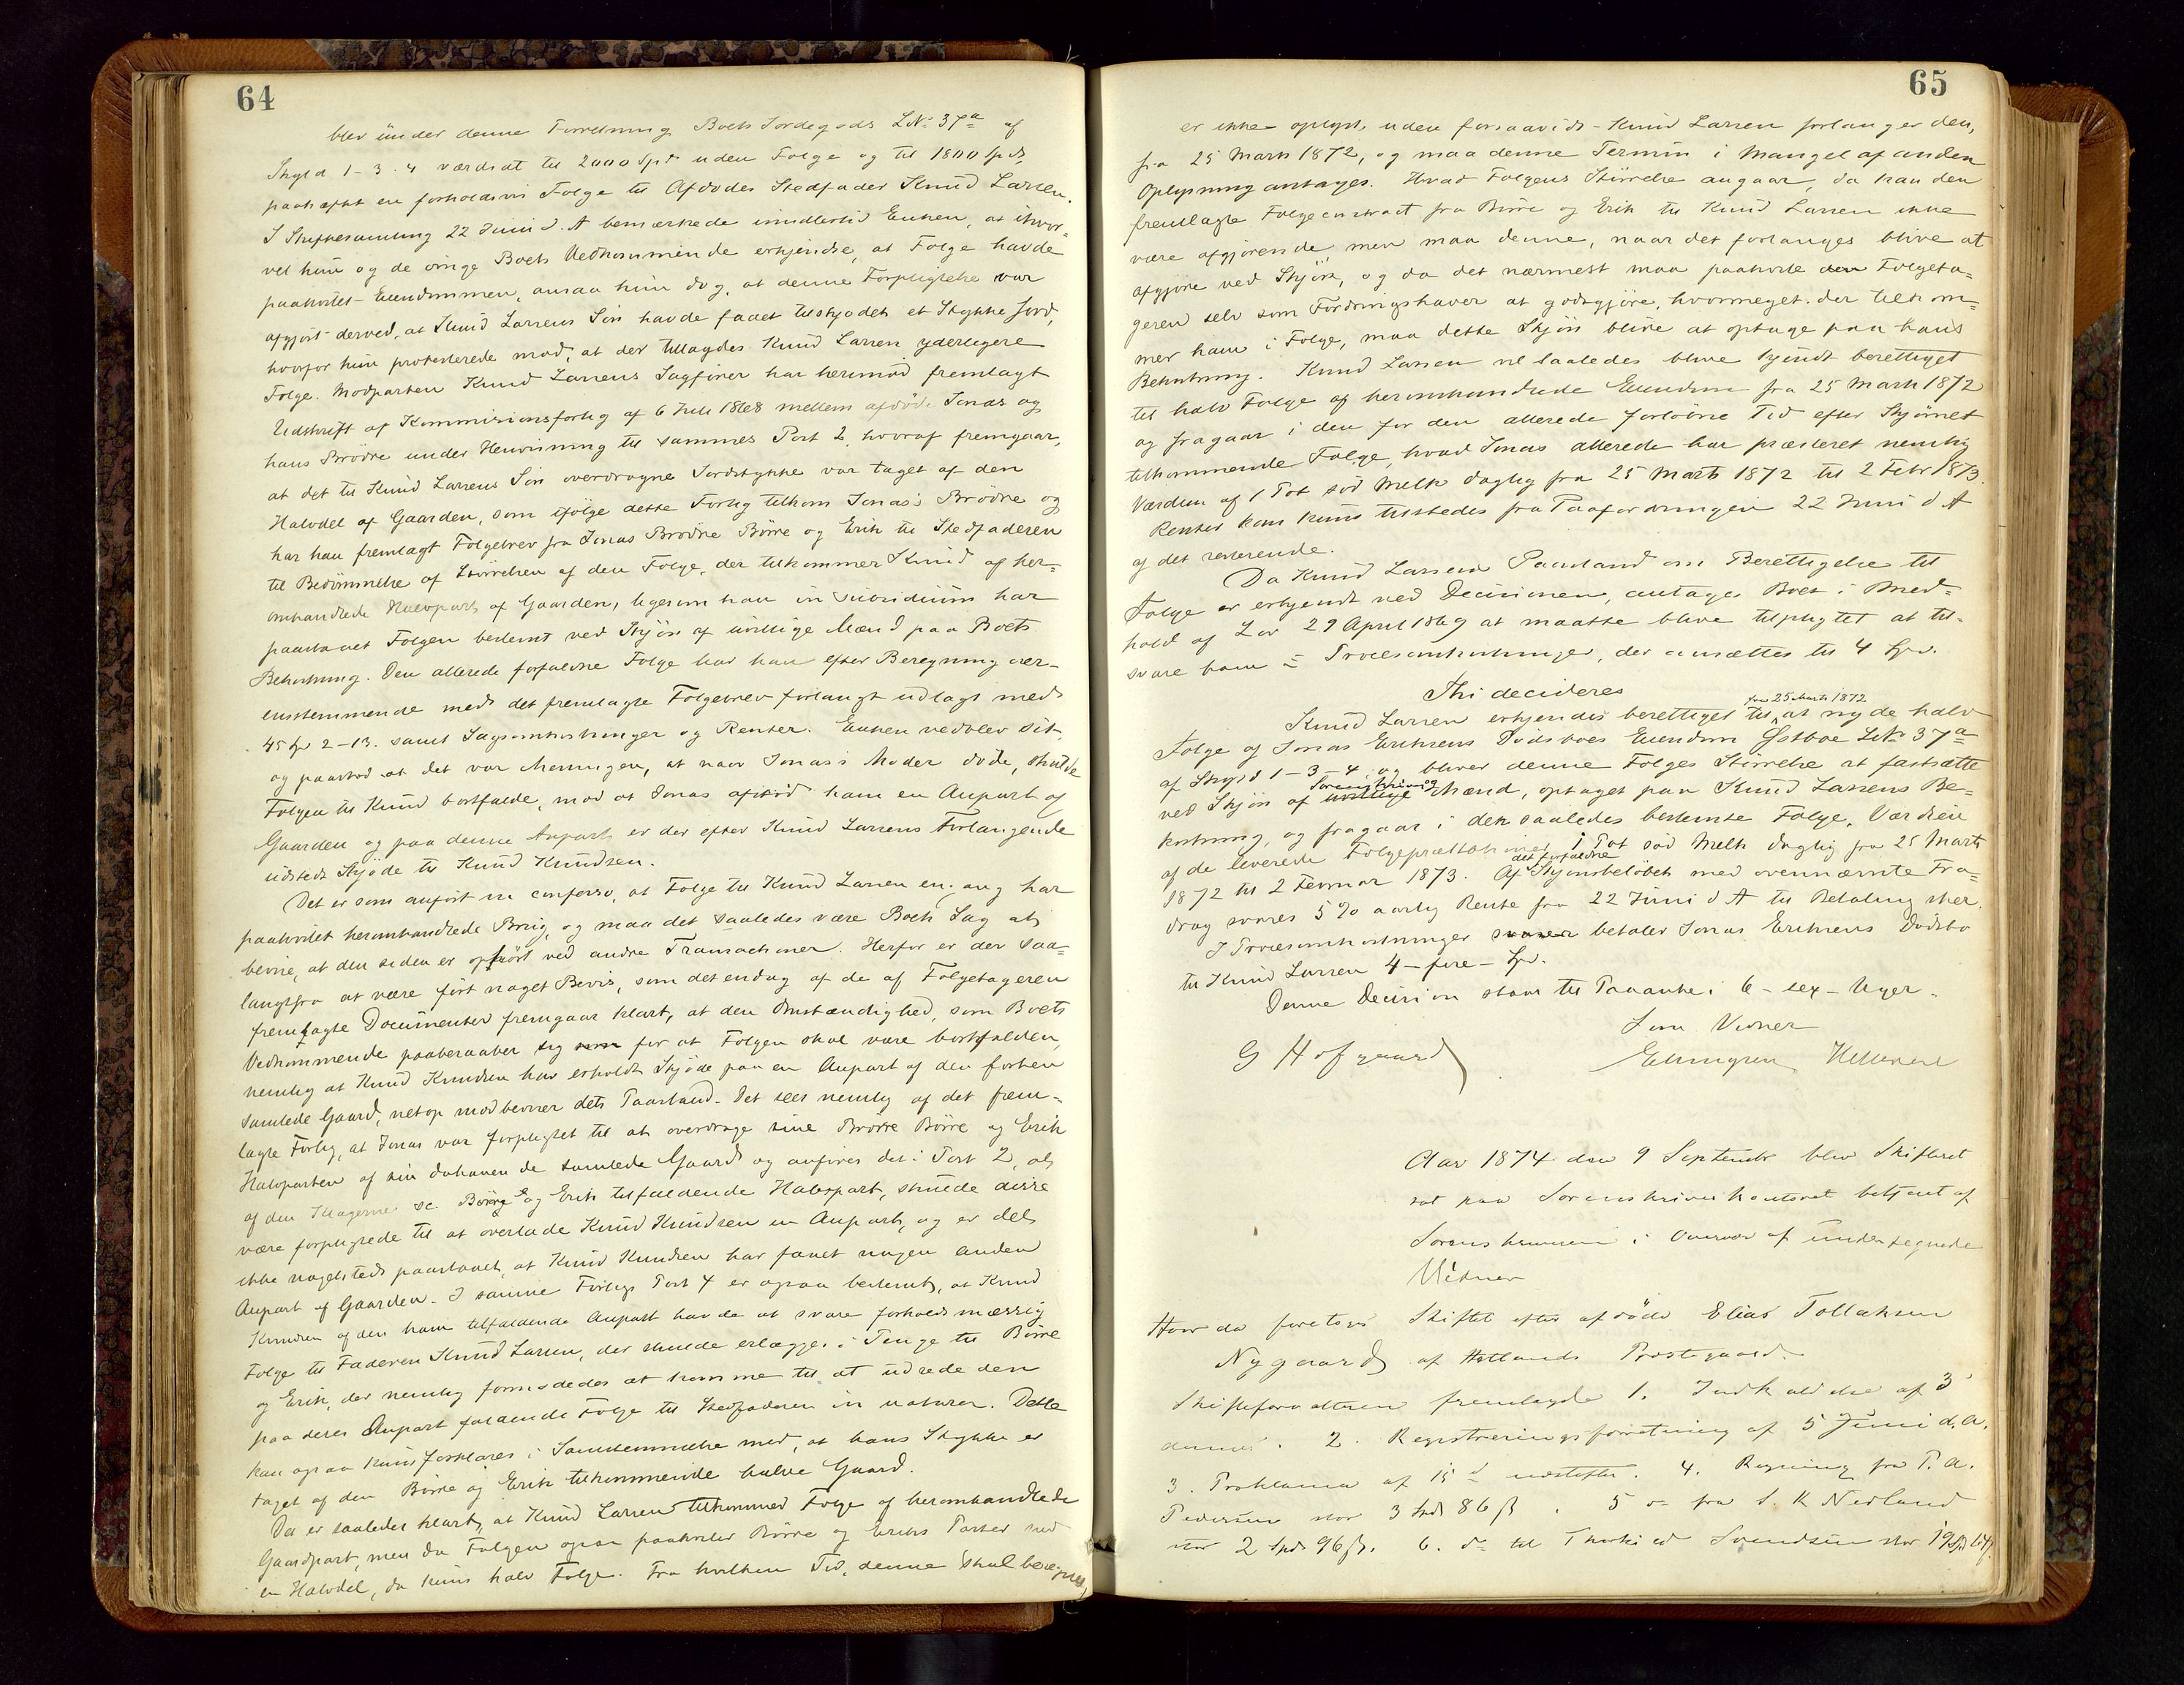 64
blev under denne Forretning Boets Jordegods LNo 37a af
Skyld 1-3-4 værdsat til 2000 Spd uden Følge og til 1800 Spd
paahæftet en forholdsvis Følge til Afdødes Stedfader Knud Larsen.
I Skiftesamling 22 Juni d. A bemærkede imidlertid Enken, at ihvor-
vel hun og de øvrige Boets Vedkommende erkjendte, at Følge havde
paahvilet Eiendommen, ansaa hun dog, at denne Forpligtelse var
afgjort derved, at Knud Larsens Søn havde faaet tilskjødet et Stykke Jord,
hvorfor hun protesterede mod, at der tillagdes Knud Larsen yderligere
Følge. Modparten Knud Larsens Sagfører har herimod fremlagt
Udskrift af Kommissionsforlig af 6 Juli 1868 mellem afdøde Jonas og
hans Brødre under Henvisning til sammes Post 2, hvoraf fremgaar,
at det til Knud Larsens Søn overdragne Jordstykke var taget af den
Halvdel af Gaarden, som ifølge dette Forlig tilkom Jonas's Brødre og
har han fremlagt Følgebrev fra Jonas Brødre Børre og Erik til Stedfaderen
til Bedømmelse af Størrelsen af den Følge, der tilkommer Knud af her-
omhandlede Halvpart af Gaarden, ligesom han in subsidium har
paastaaet Følgen bestemt ved Skjøn af uvillige Mænd paa Boets
Bekostning. Den allerede forfaldne Følge har han efter Beregning over-
ensstemmende med det fremlagte Følgebrev forlangt udlagt med
45 Spd 2-13. samt Sagsomkostninger og Renter. Enken vedblev sit,
og paastod at det var Meningen, at naar Jonas's Moder døde, skulde
Følgen til Knud bortfalde, mod at Jonas afstod ham en Anpart af
Gaarden og paa denne Anpart er der efter Knud Larsens Forlangende
udstedt Skjøde til Knud Knudsen.
Det er som anført in confesso, at Følge til Knud Larsen engang har
paahvilet heromhandlede Brug, og maa det saaledes være Boets Sag at
bevise, at den siden er ophørt ved andre Transactioner. Herfor er der saa-
langtfra at være ført noget Bevis, som det endog af de af Følgetageren
fremlagte Documenter fremgaar klart, at den Omstændighed, som Boets
Vedkommende paaberaaber sig som for at Følgen skal være bortfalden,
nemlig at Knud Knudsen har erholdt Skjøde paa en Anpart af den forhen
samlede Gaard, netop modbeviser dets Paastand. Det sees nemlig af det frem-
lagte Forlig, at Jonas var forpligtet til at overdrage sine Brødre Børre og Erik
Halvparten af sin dahavende samlede Gaard og anføres det i Post 2, at
af den Klagerne sc. Børre og Erik tilfaldende Halvpart, skulde disse
være forpligtede til at overlade Knud Knudsen en Anpart, og er det
ikke nogetsteds paastaaet, at Knud Knudsen har faaet nogen anden
Anpart af Gaarden. I samme Forligs Post 4 er ogsaa bestemt, at Knud
Knudsen af den ham tilfaldende Anpart havde at svare forholdsmæssig
Følge til Faderen Knud Larsen, der skulde erlægges i Penge til Børre
og Erik, der nemlig formodedes at komme til at udrede den
paa deres Anpart faldende Følge til Stedfaderen in natura. Dette
kan ogsaa kun forklares i Samstemmelse med, at hans Stykke er
taget af den Børre og Erik tilkommende halve Gaard.
Det er saaledes klart, at Knud Larsen tilkommer Følge af heromhandlede
Gaardpart, men da Følgen ogsaa paahviler Børre og Eriks Parter med
en Halvdel, da kun halv Følge. Fra hvilken Tid, denne skal beregnes,
65
er ikke oplyst, uden forsaavidt Knud Larsen forlanger den,
fra 25 Marts 1872, og maa denne Termin i Mangel af anden
Oplysning antages. Hvad Følgens Størrelse angaar, da kan den
fremlagte Følgecontract fra Børre og Erik til Knud Larsen ikke
være afgjørende, men maa denne, naar det forlanges blive at
afgjøre ved Skjøn, og da det nærmest maa paahvile den Følgeta-
geren selv som Fordringshaver at godtgjøre, hvormeget der tilkom-
mer ham i Følge, maa dette Skjøn blive at optage paa hans
Bekostning. Knud Larsen vil saaledes blive kjendt berettiget
til halv Følge af heromhandlede Eiendom fra 25 Marts 1872
og fragaar i den for den allerede forløbne Tid efter Skjønnet
tilkommende Følge, hvad Jonas allerede har præsteret nemlig
Værdien af 1 Pot sød Melk daglig fra 25 Marts 1872 til 2 Febr 1873.
Renter kan kuns tilstedes fra Paafordringen 22 Juni d A
af det resterende.
Da Knud Larsens Paastand om Berettigelse til
Følge er erkjendt ved Decisionen, antages Boet i Med-
hold af Lov 29 April 1869 at maatte blive tilpligtet at til-
svare ham Procesomkostninger, der ansættes til 4 Spd.
Thi decideres
fra 25 Marts 1872
Knud Larsen erkjendes berettiget til at nyde halv
Følge af Jonas Eriksens Dødsboes Eiendom Østboe LNo 37a
af Skyld 1-3-4 og bliver denne Følges Størrelse at fastsætte
ved Skjøn af uvillige Mænd, optaget paa Knud Larsens Be-
kostning, og fragaar i den saaledes bestemte Følge, Værdien
af de leverede Følgepræstationer 1 Pot sød Melk daglig fra 25 Marts
det forfaldne
1872 til 2 Februar 1873. Af Skjønsbeløbet med ovennævnte Fra-
drag svares 5 % aarlig Rente fra 22 Juni d A til Betaling sker.
I Procesomkostninger svarer betaler Jonas Eriksens Dødsbo
til Knud Larsen 4 - fire - Spd.
Denne Decision staar til Paaanke i 6 - sex - Uger.
Som Vidner
G Hofgaard
Aar 1874 den 9 September blev Skifteret
sat paa Sorenskriverkontoret betjent af
Sorenskriveren i Overvær af undertegnede
Vidner
Hvor da foretoges Skiftet efter afdøde Elias Tollaksen
Nygaard af Hetlands Prestegjæld.
Skifteforvalteren fremlagde 1. Indkaldelse af 3
dennes. 2. Registreringsforretning af 5 Juni d. A.
3. Proklama af 15 d næstefter. 4. Regning fra P. A.
Pedersen stor 3 Spd 86 ß. 5 do fra S. K Nedland
stor 2 Spd 96 ß. 6. do til Svendsen stor